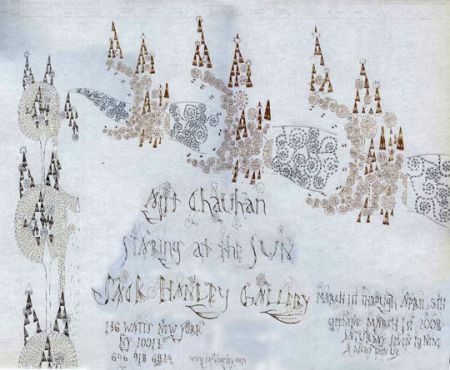 Ajit Chauhan
Staring at the Sun
Jack Hanley Gallery
136 Watts New York
NY 10013
646 918 6824
March 1st through April 5th
opening March 1st 2008
Saturday